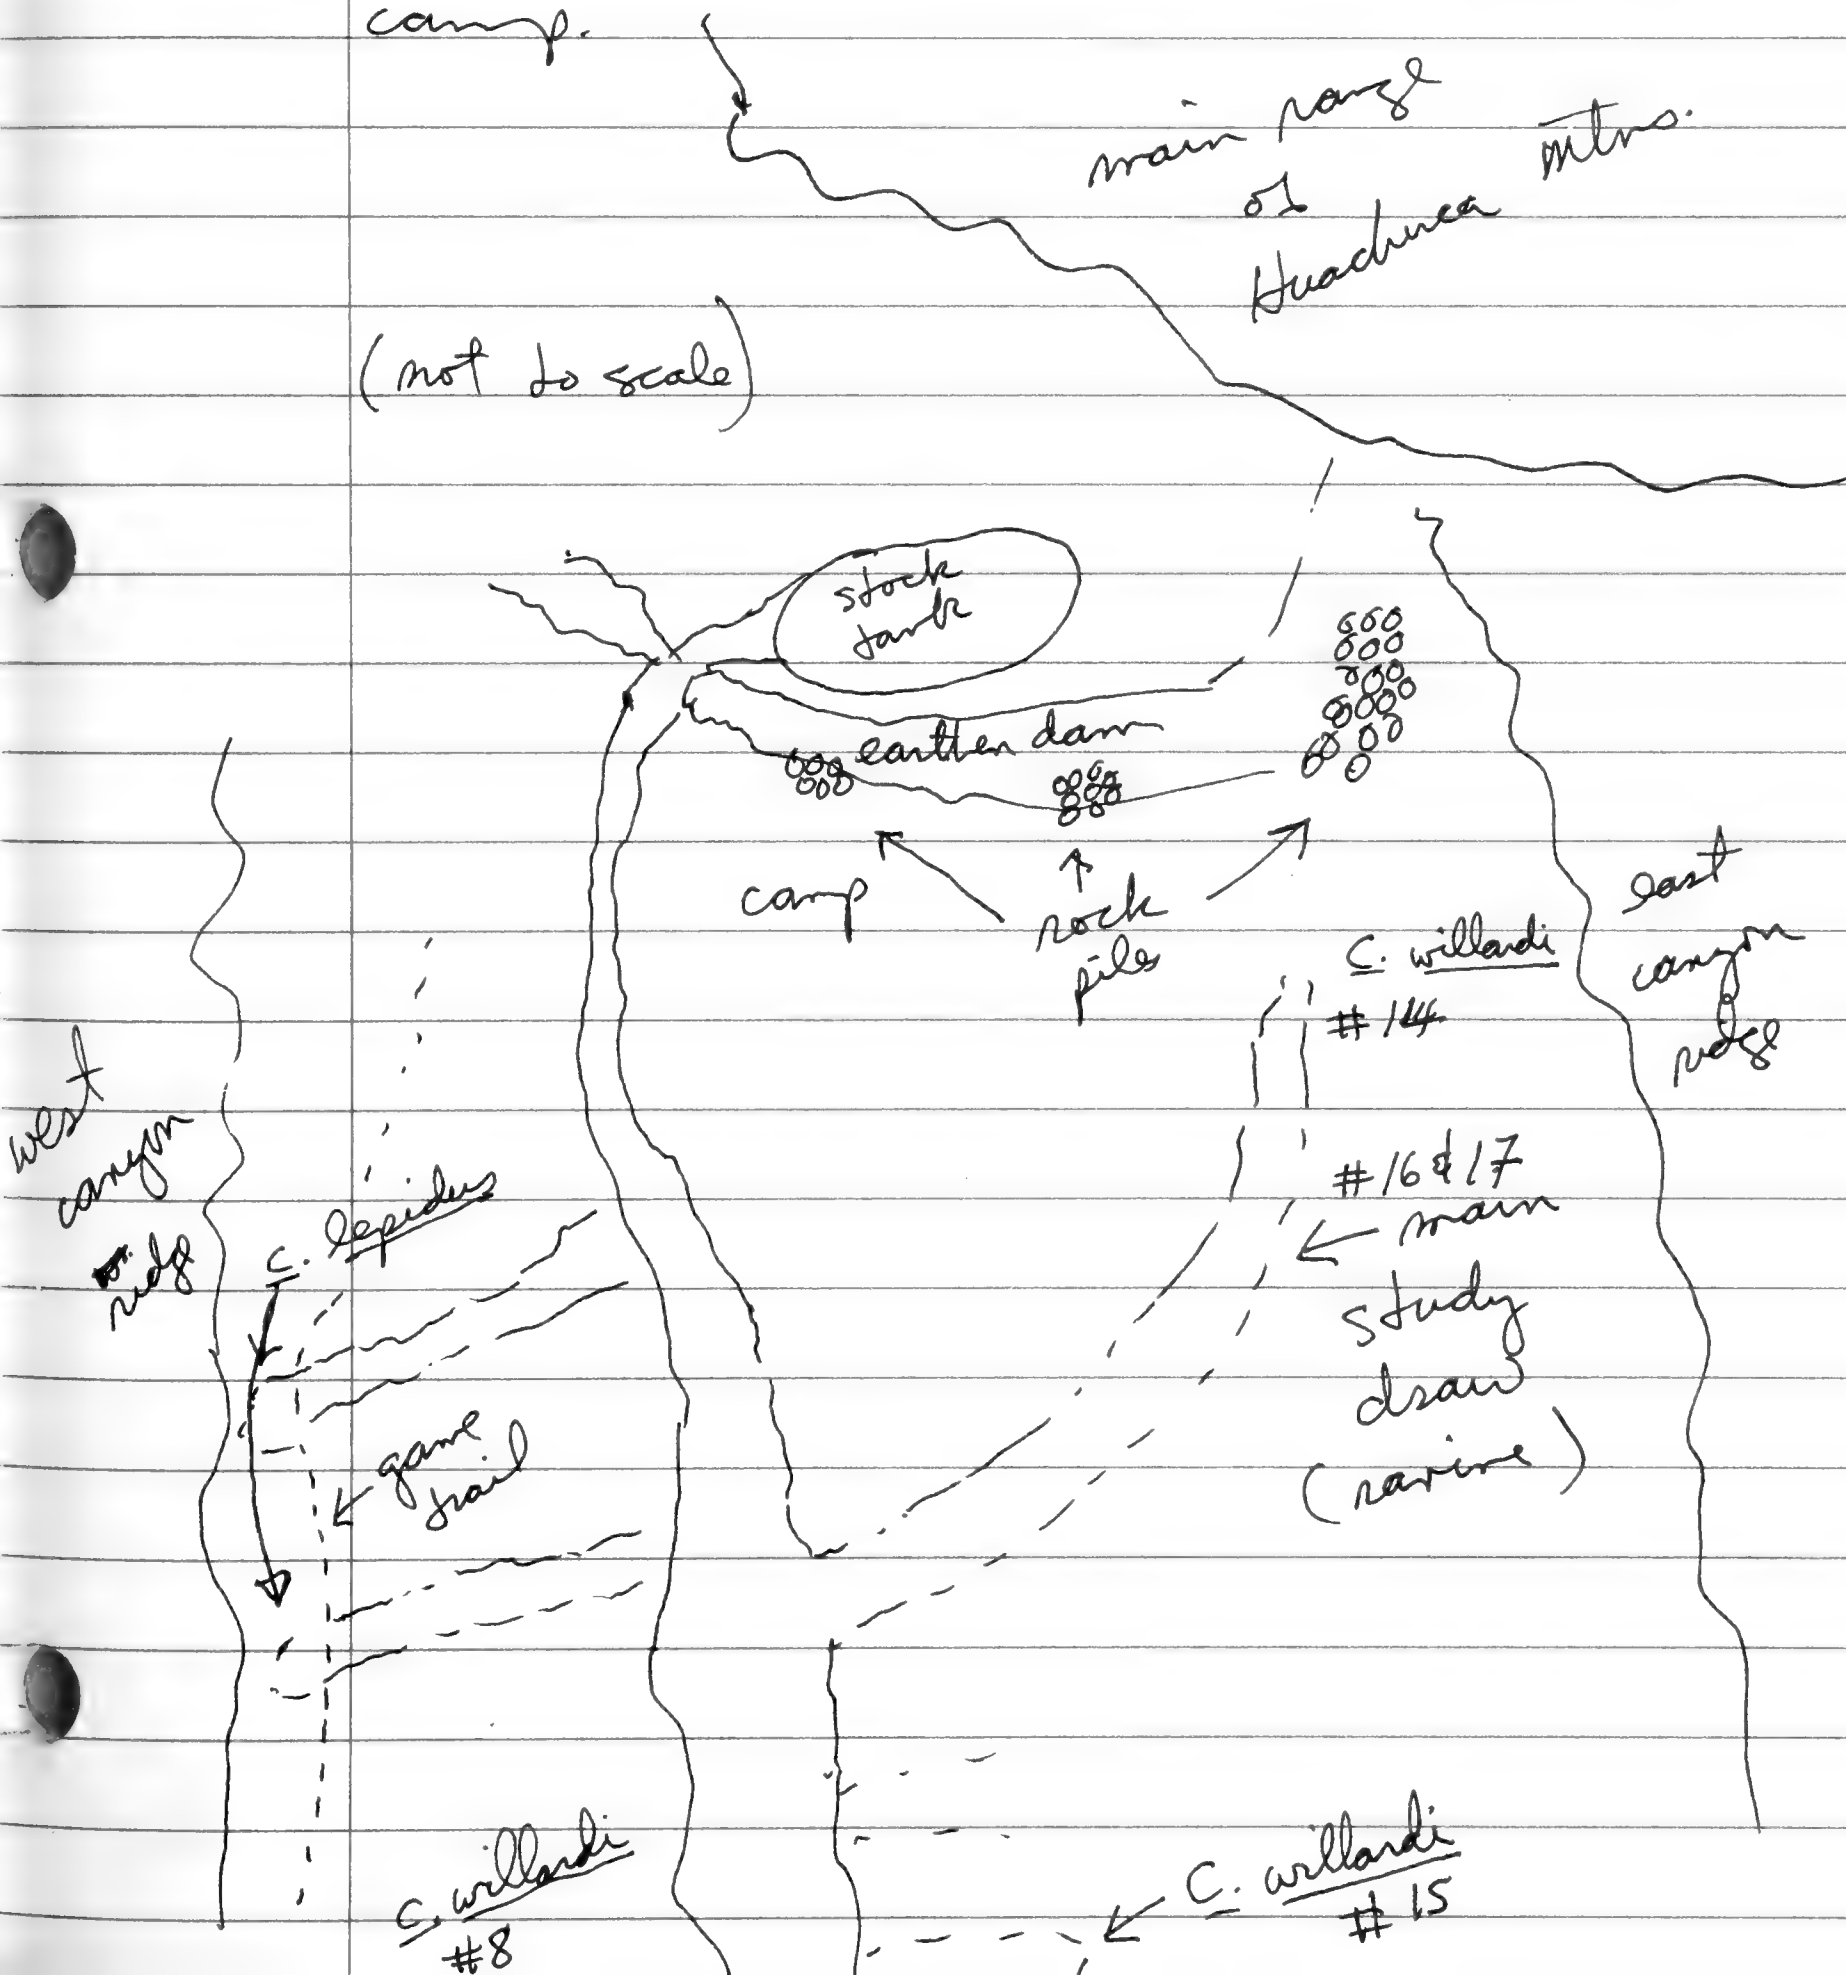 camp.
main range
of
Huachuca mtns.
(not to scale)
stock
tank
earthen dam
camp
rock
piles
C. willardi
#14
east
canyon
ridge
west
canyon
ridge
C. lepidus
#16 & 17
main
study
draw
(ravine)
game
trail
C. willardi
#8
C. willardi
#15